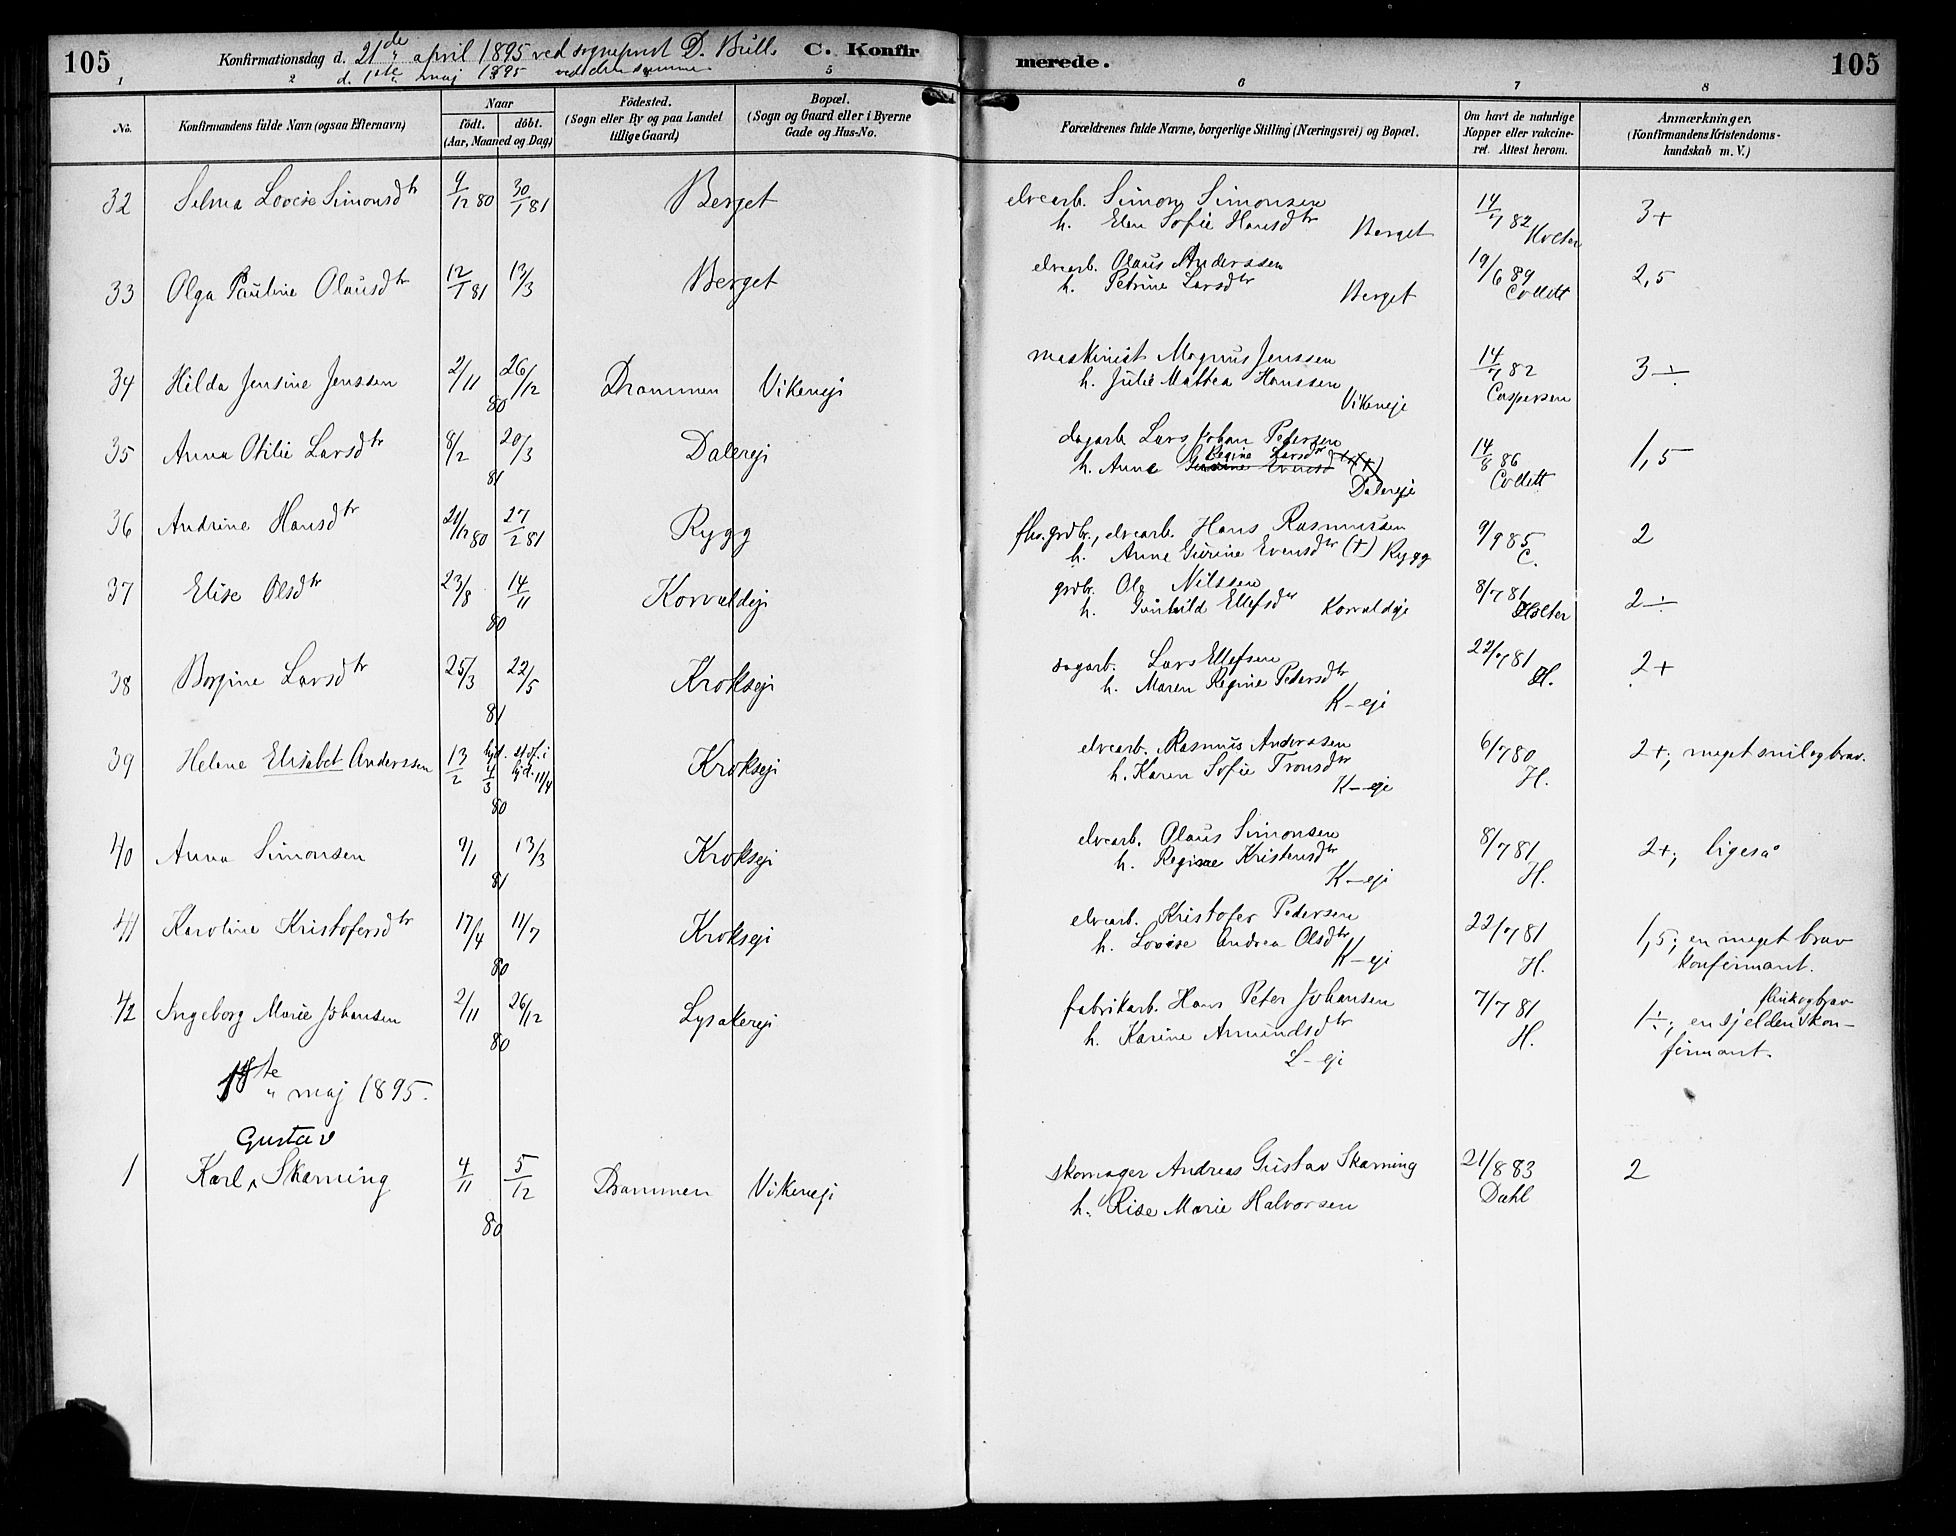 105
Konfirmationsdag d. 21de april 1895 ved sogneprest D. Bull. C. Konfirmerede. 105
d. 1ste maj 1895 ved den samme
1 2 5 6 7 8
No. Konfirmandens fulde Navn (ogsaa Efternavn) Naar födt. döbt. (Aar, Maaned og Dag) Födested. (Sogn eller By og paa Landet tillige Gaard) Bopæl. (Sogn og Gaard eller i Byerne Gade og Hus-No. Forældrenes fulde Navne, borgerlige Stilling (Næringsvei) og Bopæl. Om havt de naturlige Kopper eller vakcineret. Attest herom. Anmærkninger, (Konfirmandens Kristendomskundskab m. V.)
32 Selma Lovise Simonsdtr 9/12 80 30/1 81 Berget elvearb. Simon Simonsen 14/7 82 Holter 3+
h. Elen Sofie Hansdtr Berget
33 Olga Pauline Olausdtr 12/1 81 13/3 Berget elvearb. Olaus Anderssen 19/6 89 Collett 2,5
h. Petrine Larsdtr Berget
34 Hilda Jensine Jenssen 2/11 26/12 80 Drammen Vikeneji maskinist Magnus Jenssen 14/7 82 Caspersen 3÷
h. Julie Mathea Hanssen Vikeneje
35 Anna Otilie Larsdtr 8/2 20/3 81 Dalereji dagarb. Lars Johan Pedersen 14/8 86 Collett 1,5
h. Anne Regine Larsdtr Dalereje
36 Andrine Hansdtr 21/12 80 27/2 81 Rygg fhv. grdbr., elvearb. Hans Rasmussen 9/9 85 C. 2
h. Anne Gurine Evensdtr (+) Rygg
37 Elise Olsdtr 23/8 14/11 80 Korvaldeji grdbr. Ole Nilssen 8/7 81 Holter 2÷
h. Gunhild Ellefsdtr Korvaldeje
38 Borgine Larsdtr 25/3 22/5 81 Krokseji sagarb. Lars Ellefsen 22/7 81 H. 2+
h. Maren Regine Pedersdtr K-eje
39 Helene Elisabet Anderssen 13/2 hjd. 4/3 stdf. i kjd. 11/4 80 Krokseji elvearb. Rasmus Anderssen 6/7 80 H. 2+; meget snil og brav.
h. Karen Sofie Tronsdtr K-eje
40 Anna Simonsen 9/1 13/3 81 Krokseji elvearb. Olaus Simonsen 8/7 81 H. 2+; ligeså
h. Regine Kristensdtr K-eje
41 Karoline Kristofersdtr 17/4 11/7 80 Krokseji elvearb. Kristofer Pedersen 22/7 81 H. 1,5; en meget brav
h. Lovise Andrea Olsdtr K-eje konfirmant.
42 Ingeborg Marie Johansen 2/11 26/12 80 Lysakereji fabrikarb. Hans Peter Johansen 7/7 81 H. 1÷; en sjelden flink og brav kon-
h. Karine Amundsdtr L-eje firmant.
1ste maj 1895.
Gustav
1 Karl ^ Skarning 4/11 5/12 80 Drammen Vikeneji skomager Andreas Gustav Skarning 21/8 83 Dahl 2
h. Rise Marie Halvorsen